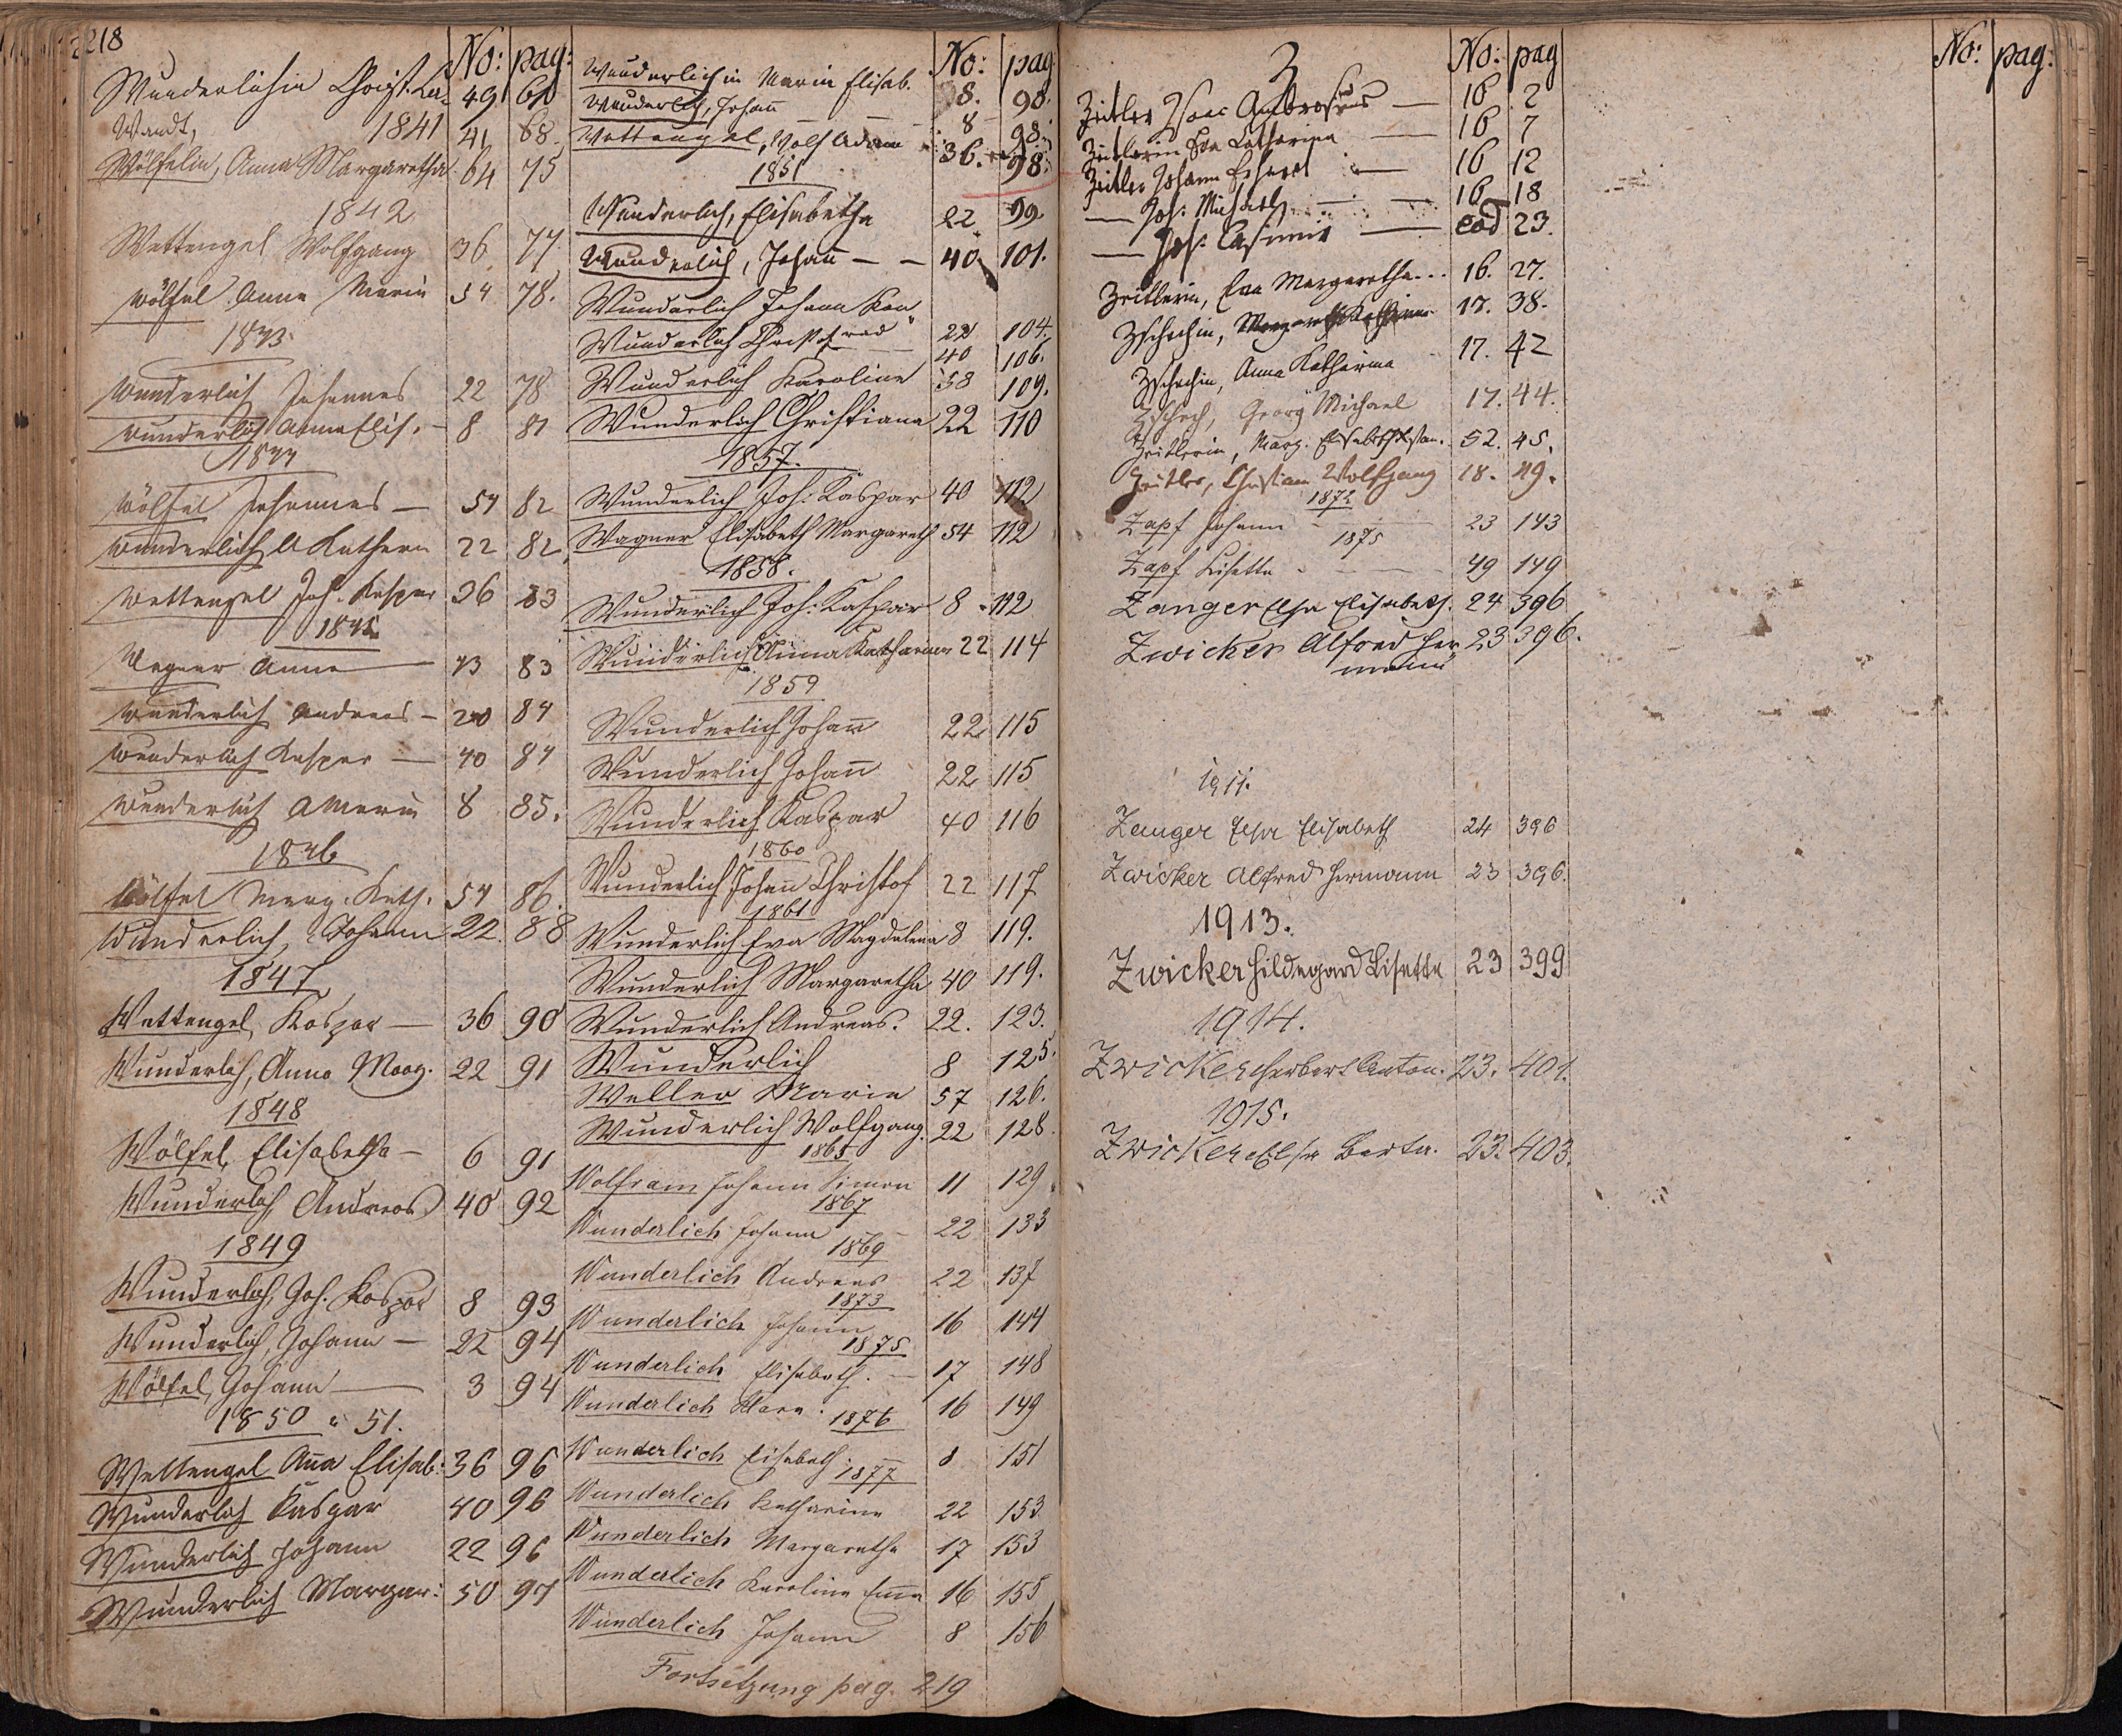 218
No: pag:
Wunderlichin Christ. 49 61
Wandt, 1841 41 68
Wölfelin, Anna Margaretha 64 75
1842
Wettengel Wolfgang 36 77
Wölfel Anna Maria 54 78.
1843
Wunderlich Johannes 22 78
Wunderlich Anna Elis. 8 81
1844
Wölfel Johannes — 54 82
Wunderlich A Kathern 22 82
Wettengel Joh. Kaspar 36 83
1845
Wagner Anna 13 83
Wunderlich Andreas — 20 84
Wunderlich Kaspar — 40 84
Wunderlich A Maria 8 85.
1846
Wölfel Marg. Kath. 54 86.
Wunderlich, Johann 22. 88
1847
Wettengel, Kaspar — 36 90
Wunderlich, Anna Marg. 22 91
1848
Wölfel, Elisabetha — 6 91
Wunderlich, Andreas 40 92
1849
Wunderlich, Joh. Kaspar 8 93
Wunderlich, Johann — 22 94
Wölfel, Johann — 3 94
1850 u 51.
Wettengel Aña Elisab: 36 96
Wunderlich Kaspar 40 96
Wunderlich Johann 22 96
Wunderlich Margar: 50 97
No: pag
Wunderlich in Maria Elisab. 38. 98.
Wunderlich, Johañ — — 8 98.
Wettengel, Wolf Adam 36. 98.
1851
Wunderlich, Elisabetha 22. 99.
Wunderlich, Johañ — — 40 101.
Wunderlich Johann Konrad 22 104.
Wunderlich Christof 40 106.
Wunderlich Karoline 58 109.
Wunderlich Christiana 22 110
1857.
Wunderlich Joh: Kaspar 40 112
Wagner Elisabeth Margareth 54 112
1858.
Wunderlich Joh: Kaspar 8 112
Wunderlich Anna Katharina 22 114
1859
Wunderlich Johañ 22 115
Wunderlich Johañ 22 115
Wunderlich Kaspar 40 116
1860
Wunderlich Johañ Christof 22 117
1861
Wunderlich Eva Magdalena 8 119.
Wunderlich Margaretha 40 119.
Wunderlich Andreas. 22. 123.
Wunderlich 8 125.
Weller Maria 57 126.
Wunderlich Wolfgang. 22 128.
1865
Wolfram Johann Simon 11 129.
1867
Wunderlich Johann — 22 133
1869
Wunderlich Andreas 22 137
1873
Wunderlich Johann 16 144
1875
Wunderlich Elisabeth. — 17 148
Wunderlich Klara. 16 149
1876
Wunderlich Elisabeth. 8 151
1877
Wunderlich Katharina 22 153
Wunderlich Margaretha 17 153
Wunderlich Karolina Em̄a 16 155
Wunderlich Johann 8 156
Fortsetzung pag. 219
Z
No: pag
Zeitler Isaac Ambrosius — 16 2
Zeitlerin Eva Catharina — 16 7
Zeitler Johann Erhard — 16 12
— Joh: Michael — 16 18
— Joh: Casimir — eod 23.
Zeitlerin, Eva Margaretha... 16. 27.
Zschechin, 17. 38.
Zschechin, Anna Katharina 17. 42
Zschech, Georg Michael 17. 44.
Zeitlerin, Marg. Elisabeth 52. 45.
Zeitler, Christian Wolfgang 18. 49.
1872
Zapf Johann — 23 143
1875
Zapf Lisetta — 49 149
Zanger Elsa Elisabeth. 24 396
Zwicker Alfred Her- 23 396.
mann
1911.
Zanger Elsa Elisabeth 24 396
Zwicker Alfred Hermann 23 396.
1913.
Zwicker Hildegard Lisette 23 399
1914.
Zwicker Herbert Anton. 23. 401.
1915.
Zwicker Elsa Berta. 23. 403.
No: pag: